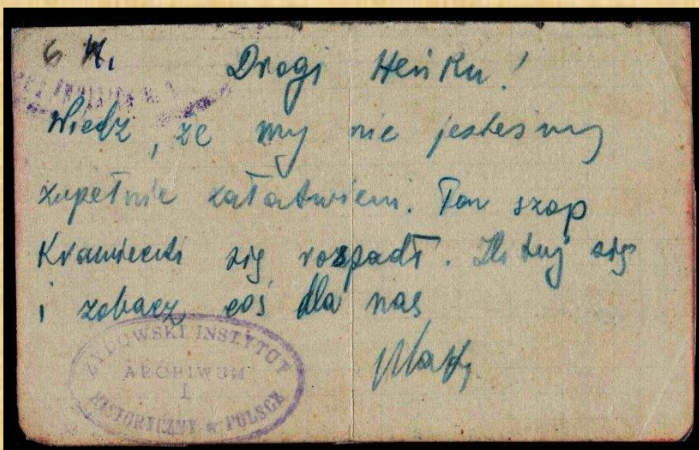 6 K.
Drogi Heńku!
Wiedz, że my nie jesteśmy
zupełnie załatwieni. Ten szop
Krawiecki się rozpadł. Lituj się
i zobacz coś dla nas
ŻYDOWSKI INSTYTUT
ARCHIWUM
I
HISTORYCZNY W POLSCE